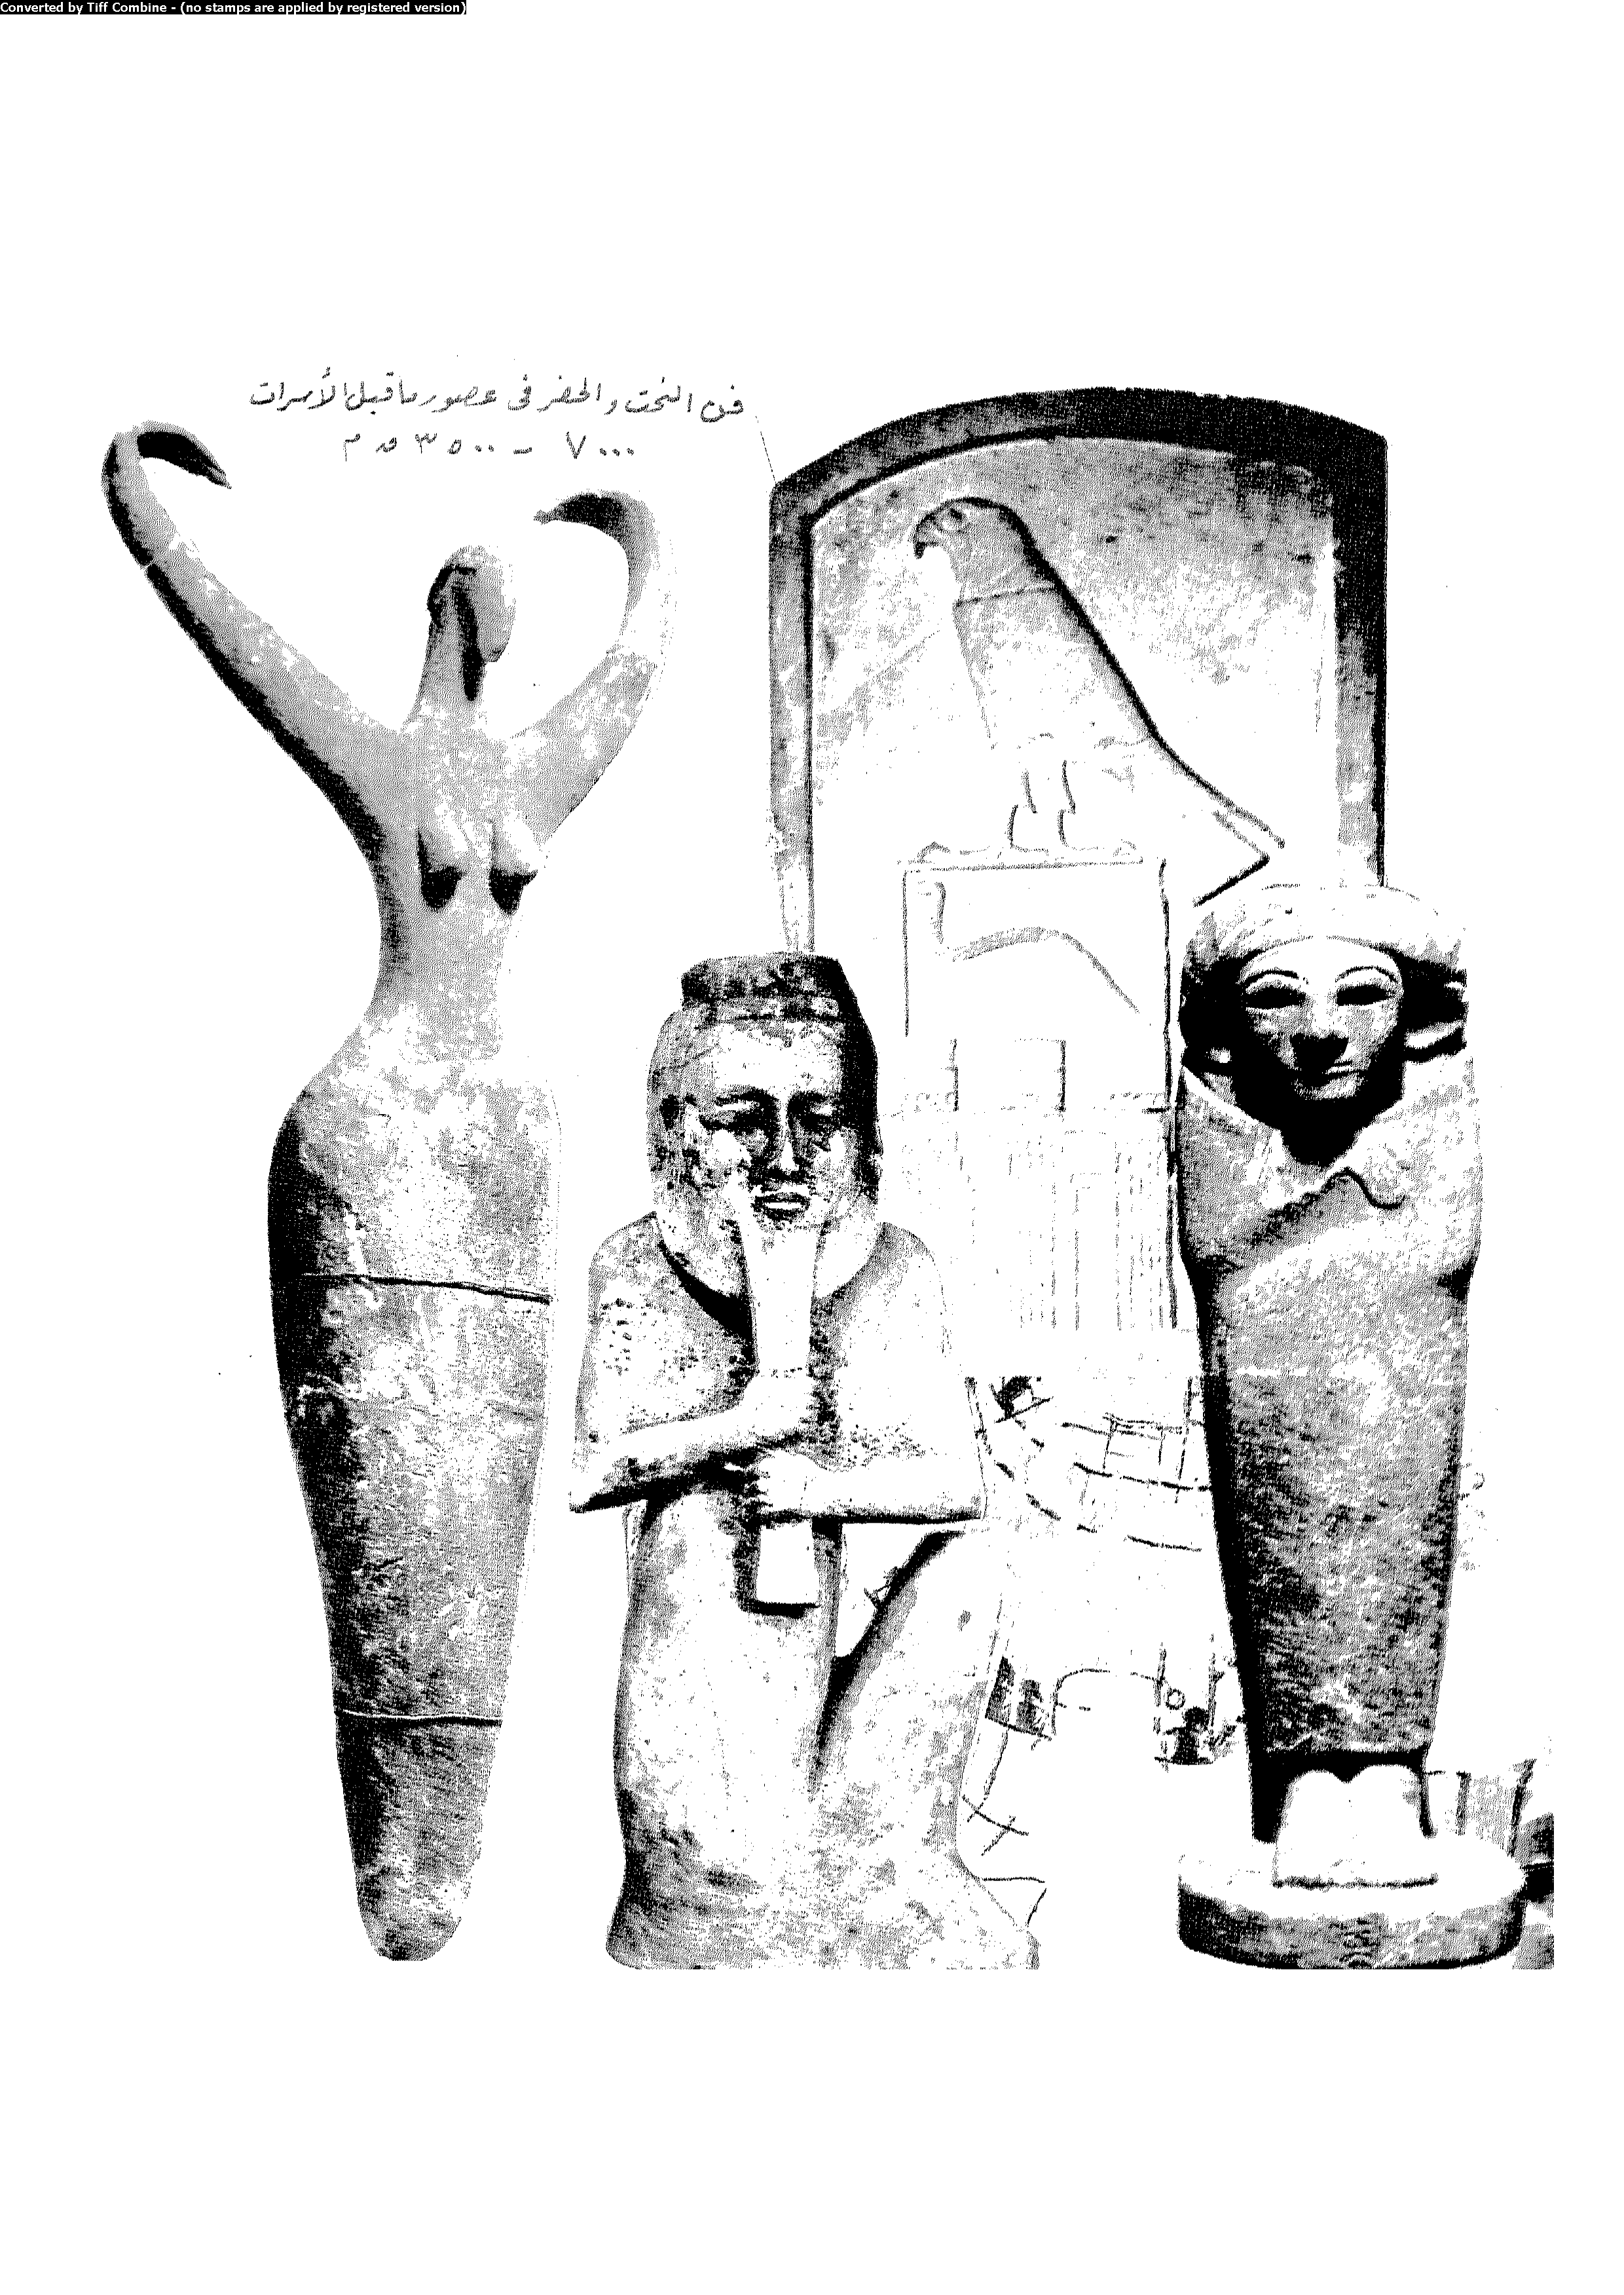 Converted by Tiff Combine - (no stamps are applied by registered version)
فن النحت والحفر فى عصور ماقبل الأسرات
٧٠٠٠ - ٣٥٠٠ ق م